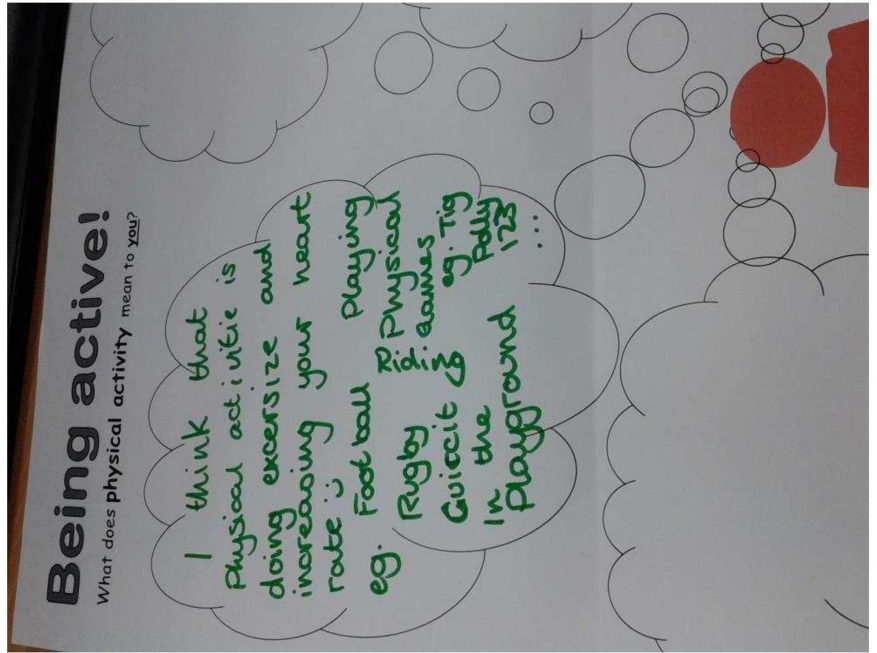 Being active!
What does physical activity mean to you?
I think that
Physical activitie is
doing excersize and
increasing your heart
rate
eg. Football
Rugby
In the
Playground
Riding
Playing
Physical
Games
eg. Tig
Polly
123
...